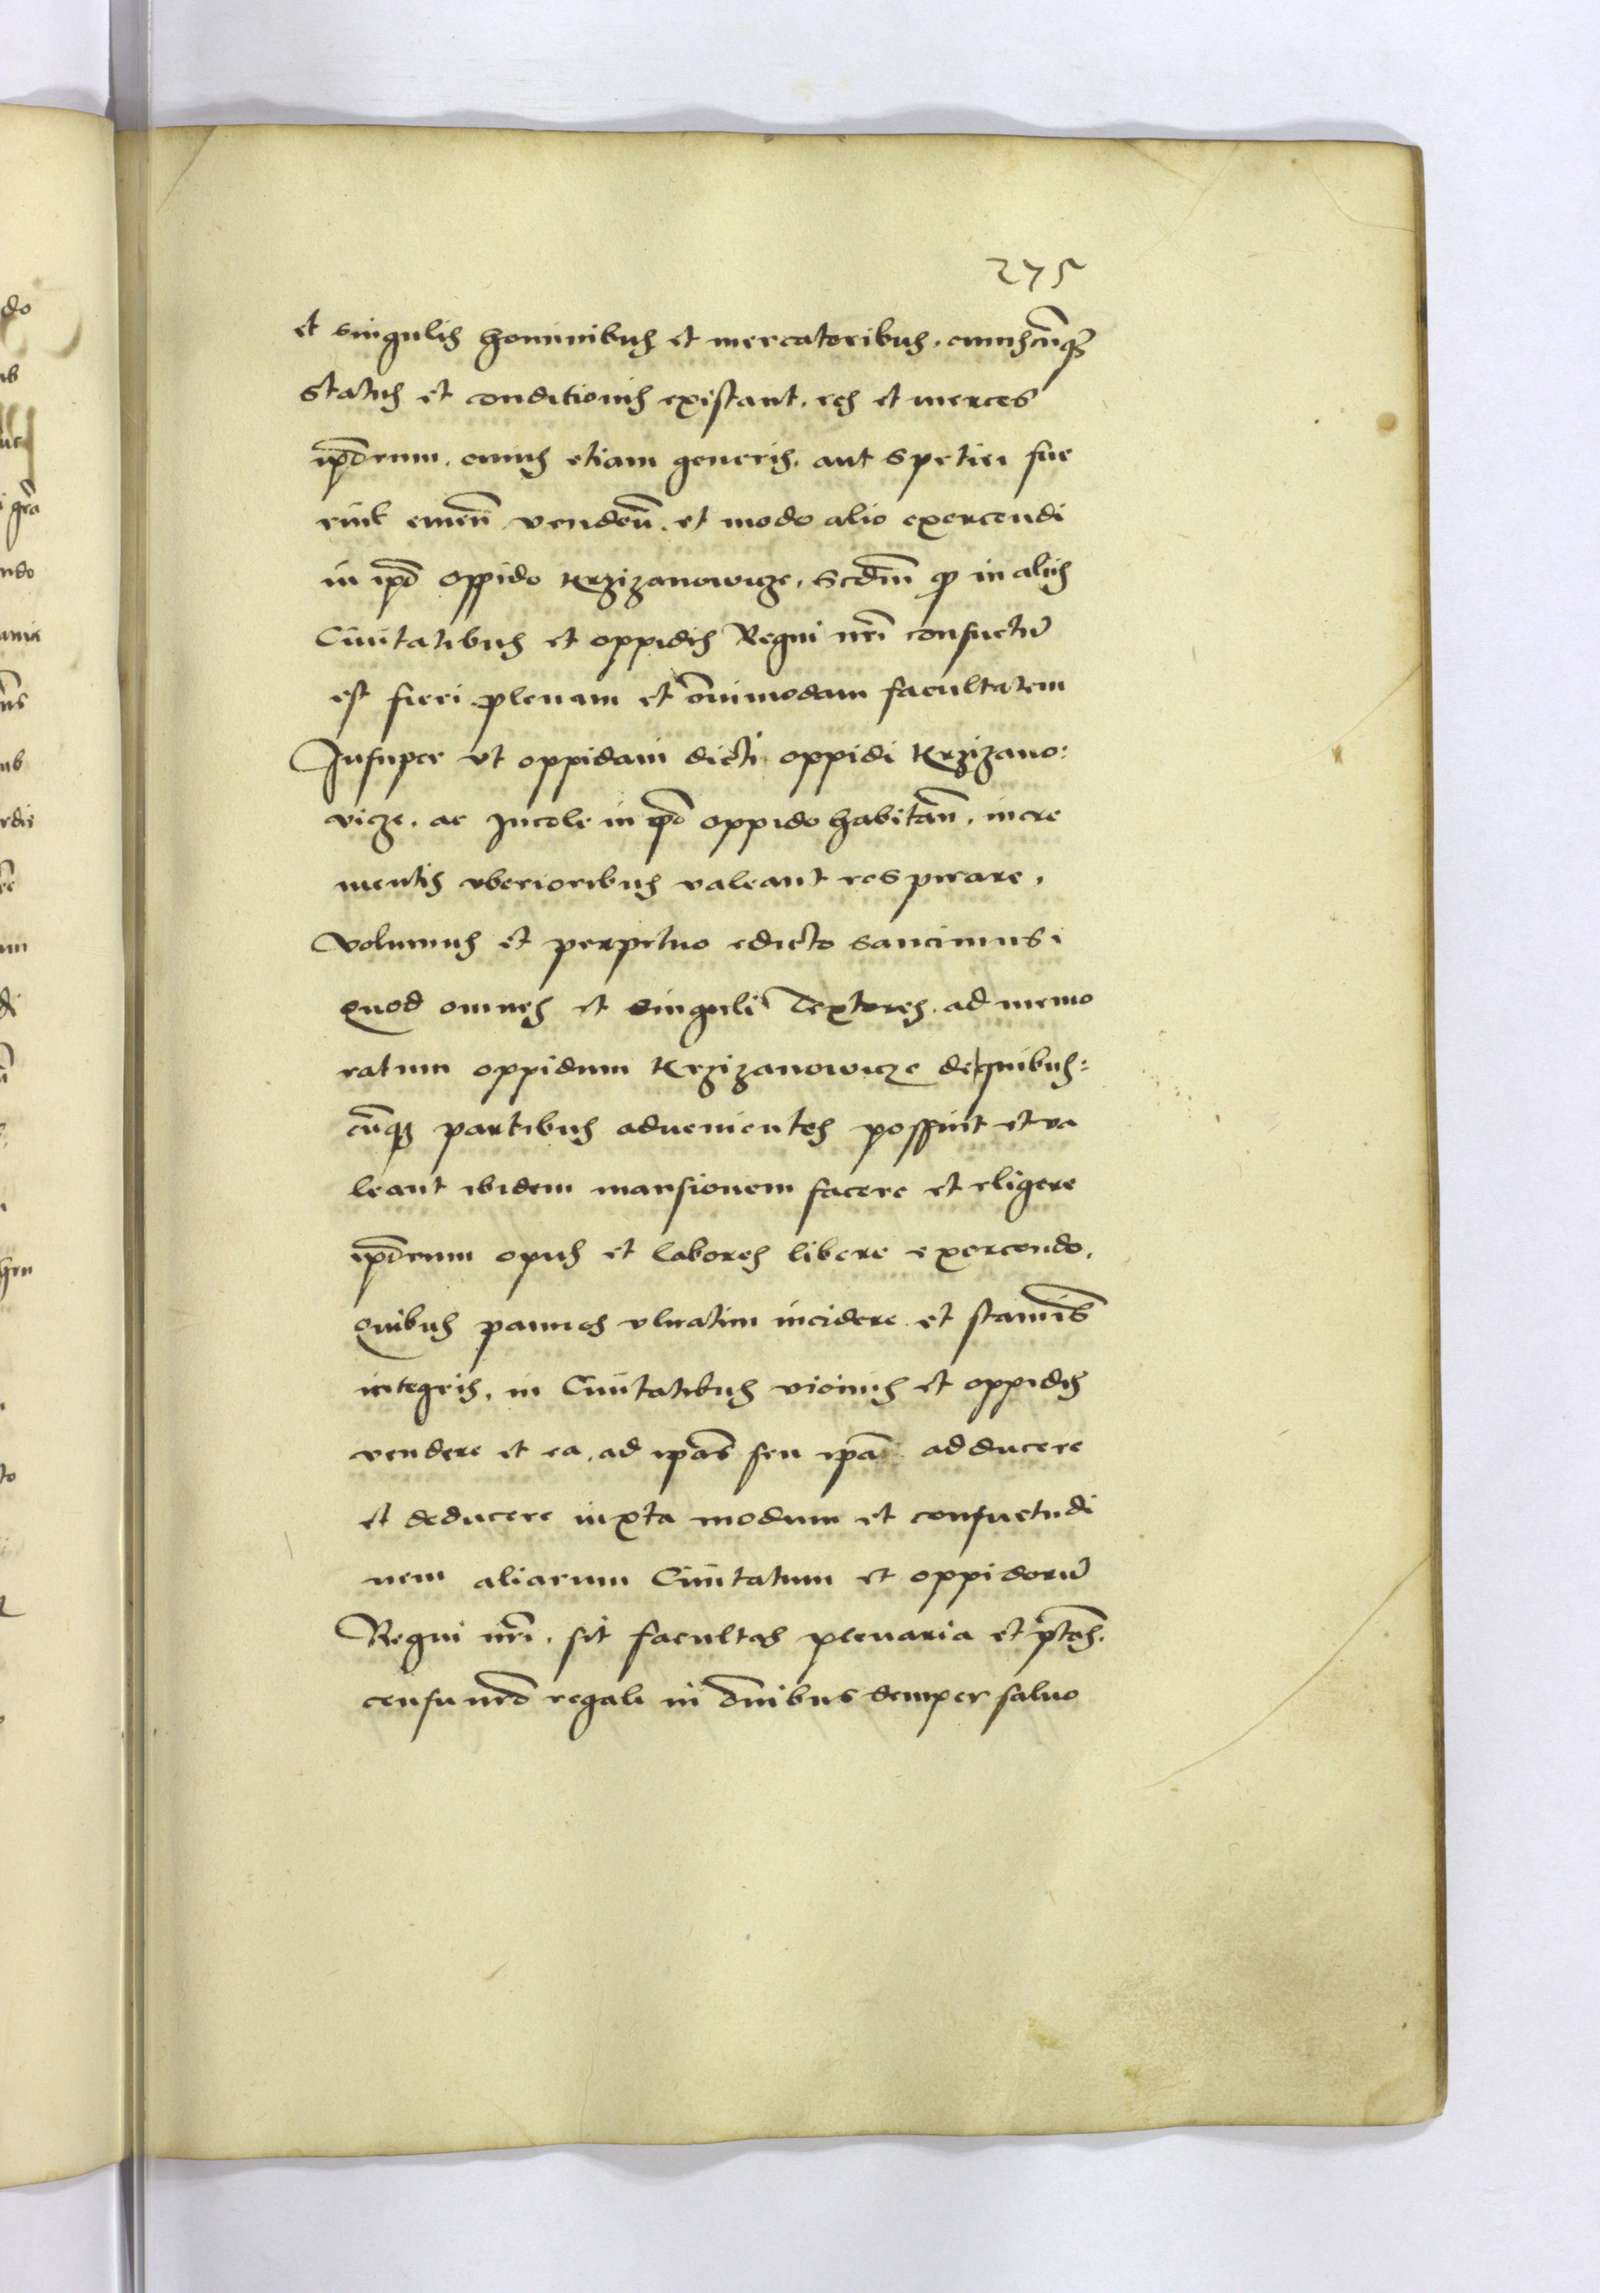 275
et singulis hominibus et mercatoribus. cuiuscūq3
status et conditionis existant. res et merces
ip̄orum. cuius etiam generis. aut spetiei fue
rint emēn̄ vendeñ. et modo alio exercendi
in ip̄o oppido Krzizanowicze. scdm̄ q in alijs
Ciuitatibus et oppidis Regni nr̄i consuetū
est fieri plenam et ōnimodam facultatem
Insuper vt oppidani dicti oppidi Krzizano:
vicze. ac Incole in ip̄o oppido habitan̄. incre
mentis vberioribus valeant respirare.
Volumus et perpetuo edicto sancimus
Quod omnes et singuli Textores. ad memo
ratum oppidum Krzizanowicze de quibus:
cūq3 partibus aduenientes possint et va
leant ibidem mansionem facere et eligere
ip̄orum opus et labores libere exercendo.
Quibus pannos vlnatim incidere et staminī̄s
integris. in Ciuitatibus vicinis et oppidis
vendere et ea. ad ip̄as seu ip̄a adducere
et deducere iuxta modum et consuetudi
nem aliarum Ciuitatum et oppidorū
Regni nr̄i. sit facultas plenaria et ptās.
censu nr̄o regali in ōnibus semper saluo